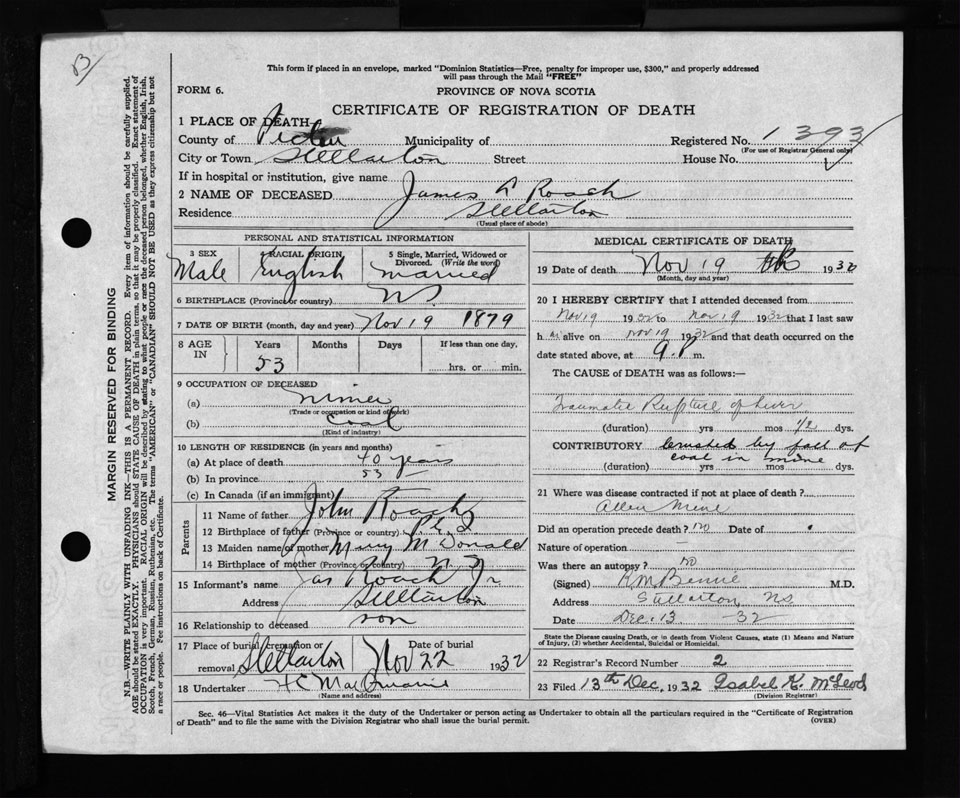 B
This form if placed in an envelope, marked "Dominion Statistics—Free, penalty for improper use, $300," and properly addressed
will pass through the Mail "FREE"
FORM 6.
PROVINCE OF NOVA SCOTIA
CERTIFICATE OF REGISTRATION OF DEATH
1 PLACE OF DEATH
County of Pictou Municipality of Registered No. 1393
(For use of Registrar General only)
City or Town Stellarton Street House No.
If in hospital or institution, give name
2 NAME OF DECEASED James A Roach
Residence Stellarton
(Usual place of abode)
PERSONAL AND STATISTICAL INFORMATION
3 SEX Male
4 RACIAL ORIGIN English
5 Single, Married, Widowed or Divorced. (Write the word) married
6 BIRTHPLACE (Province or country) NS.
7 DATE OF BIRTH (month, day and year) Nov 19 1879
8 AGE IN Years 53 Months Days If less than one day, hrs. or min.
9 OCCUPATION OF DECEASED
(a) miner
(Trade or occupation or kind of work)
(b) coal
(Kind of industry)
10 LENGTH OF RESIDENCE (in years and months)
(a) At place of death 40 years
(b) In province 53
(c) In Canada (if an immigrant)
Parents
11 Name of father John Roach
12 Birthplace of father (Province or country) P.E.I
13 Maiden name of mother Mary McDonald
14 Birthplace of mother (Province or country) N.S
15 Informant's name Jas Roach Jr
Address Stellarton
16 Relationship to deceased son
17 Place of burial, cremation or removal Stellarton Date of burial Nov 22 1932
18 Undertaker H C
(Name and address)
MEDICAL CERTIFICATE OF DEATH
19 Date of death Nov 19 1932
(Month, day and year)
20 I HEREBY CERTIFY that I attended deceased from
Nov 19 1932 to Nov 19 1932 that I last saw
h alive on Nov 19 1932 and that death occurred on the
date stated above, at 9 P. m.
The CAUSE of DEATH was as follows:—
Traumatic Rupture of Liver
(duration) yrs mos 1/2 dys.
CONTRIBUTORY Crushed by fall of
coal in mine
(duration) yrs mos dys.
21 Where was disease contracted if not at place of death?
Allan Mine
Did an operation precede death? no Date of
Nature of operation —
Was there an autopsy? no
(Signed) M.D.
Address Stellarton NS
Date Dec. 13 - 32
State the Disease causing Death, or in death from Violent Causes, state (1) Means and Nature
of Injury, (2) whether Accidental, Suicidal or Homicidal.
22 Registrar's Record Number 2
23 Filed 13th Dec. 1932 Isabel K. McLeod
(Division Registrar)
Sec. 46—Vital Statistics Act makes it the duty of the Undertaker or person acting as Undertaker to obtain all the particulars required in the "Certificate of Registration
of Death" and to file the same with the Division Registrar who shall issue the burial permit.
(OVER)
MARGIN RESERVED FOR BINDING
N.B.—WRITE PLAINLY WITH UNFADING INK—THIS IS A PERMANENT RECORD. Every item of information should be carefully supplied.
AGE should be stated EXACTLY. PHYSICIANS should STATE CAUSE OF DEATH in plain terms, so that it may be properly classified. Exact statement of
OCCUPATION is very important. RACIAL ORIGIN will be described by stating to what people or race the deceased person belonged, whether English, Irish,
Scotch, French, German, Russian, Ruthenian, etc. The terms "AMERICAN" or "CANADIAN" SHOULD NOT BE USED as they express citizenship but not
a race or people. Fee instructions on back of Certificate.